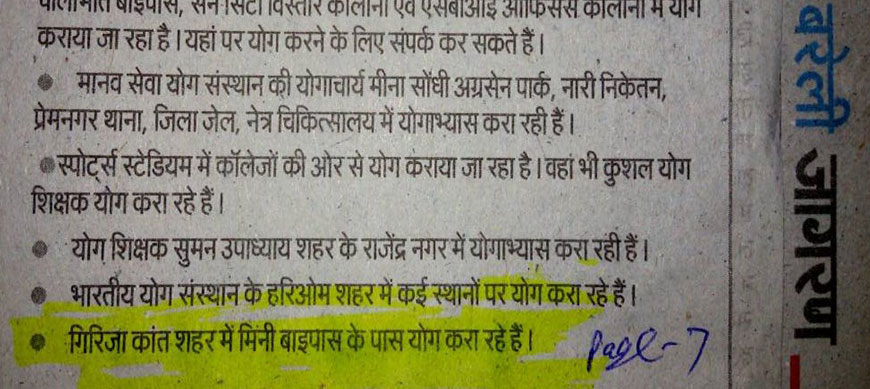 पीलीभीत बाइपास, सन सिटी विस्तार कालोनी एवं एसबीआई ऑफिसर्स कालोनी में योग
कराया जा रहा है। यहां पर योग करने के लिए संपर्क कर सकते हैं।
● मानव सेवा योग संस्थान की योगाचार्य मीना सोंधी अग्रसेन पार्क, नारी निकेतन,
प्रेमनगर थाना, जिला जेल, नेत्र चिकित्सालय में योगाभ्यास करा रही हैं।
● स्पोर्ट्स स्टेडियम में कॉलेजों की ओर से योग कराया जा रहा है। वहां भी कुशल योग
शिक्षक योग करा रहे हैं।
● योग शिक्षक सुमन उपाध्याय शहर के राजेंद्र नगर में योगाभ्यास करा रही हैं।
● भारतीय योग संस्थान के हरिओम शहर में कई स्थानों पर योग करा रहे हैं।
● गिरिजा कांत शहर में मिनी बाइपास के पास योग करा रहे हैं।
Page-7
बरेली जागरण